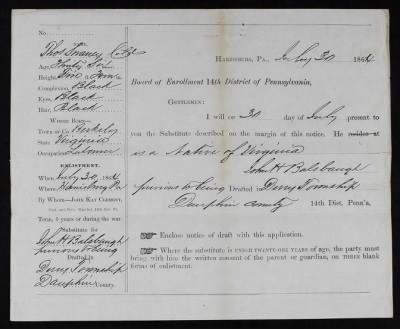 No.
Thos
Age, Thirty Six
Height,
Complexion, Black
Eyes, Black
Hair, Black
Where Born—
Town or Co. Berkeley
State, Virginia
Occupation, Laborer
ENLISTMENT.
When, July 30, 1864
Where, Harrisburg Pa
By Whom—John Kay Clement,
Capt. and Prov. Marshal 14th Dis. Pa.
Term, 3 years or during the war.
Substitute for
John H Balsbaugh
previous to being
Drafted in
Derry Township
Dauphin County.
Harrisburg, Pa., July 30 1864
Board of Enrollment 14th District of Pennsylvania,
Gentlemen:
I will on 30 day of July present to
you the Substitute described on the margin of this notice. He resides at
is a Native of Virginia
John H Balsbaugh
previous to being Drafted in Derry Township
Dauphin county 14th Dist. Penn'a.
Enclose notice of draft with this application.
Where the substitute is UNDER TWENTY-ONE YEARS of age, the party must
bring with him the written consent of the parent or guardian, on THREE blank
forms of enlistment.